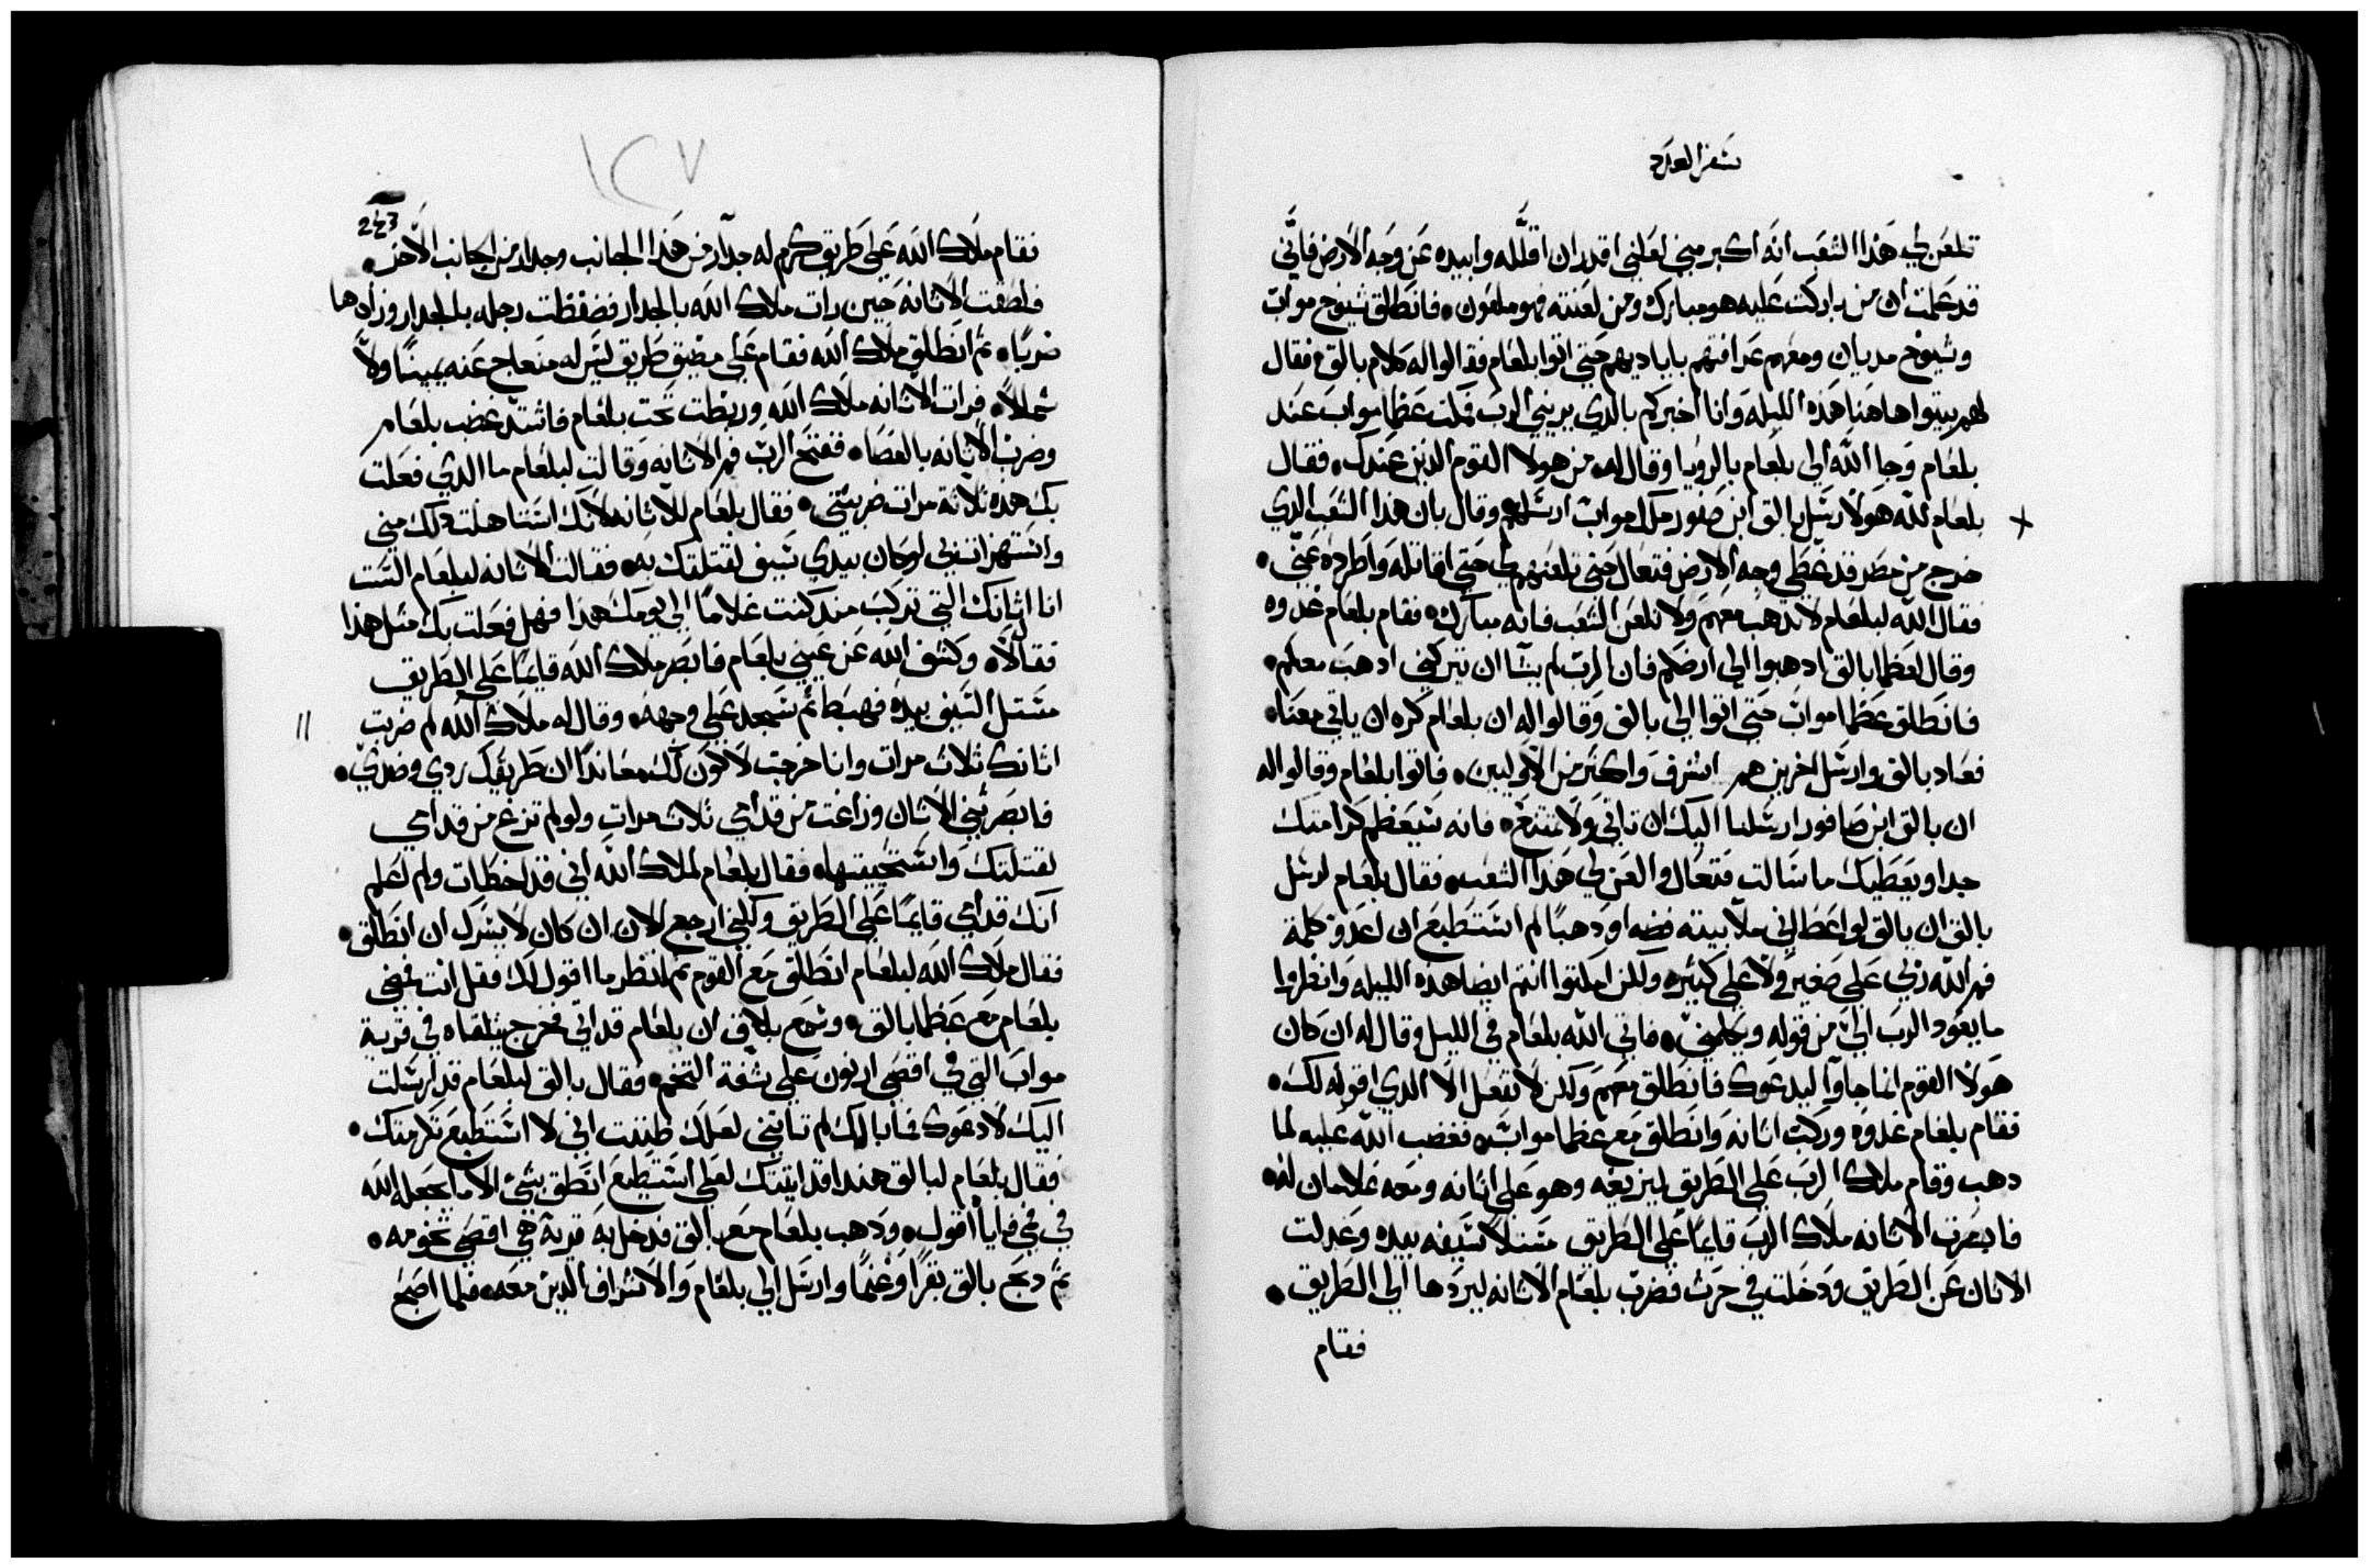 سفر العدد
تلعن لي هذا الشعب انه اكبر مني لعلني اقدر ان اقلله وابيده عن وجه الارض فاني
قد علمت ان من باركت عليه هو مبارك ومن لعنته فهو ملعون فانطلق شيوخ مواب
وشيوخ مديان ومعهم عرافتهم باياديهم حتي اتوا بلعام فقالوا له كلام بالق فقال
لهم بيتوا هاهنا هذه الليله وانا اخبركم بالدي يريني الرب فمكث عظما مواب عند
بلعام وجا الله الي بلعام بالرويا وقال له من هولا القوم الذين عندك فقال
بلعام لله هولا رسل بالق ابن صفور ملك مواب ارسلهم وقال بان هذا الشعب الدي
خرج من مصر قد غطي وجه الارض فتعال حتي تلعنهم لي حتي اقاتله واطرده عني
فقال الله لبلعام لا تدهب معهم ولا تلعن الشعب فانه مبارك فقام بلعام غدوه
وقال لعظما بالق ادهبوا الي ارضكم فان الرب لم يشا ان يتركني ادهب معكم
فانطلق عظما مواب حتي اتوا الي بالق وقالوا له ان بلعام كره ان ياتي معنا
فعاد بالق وارسل اخرين هم اشرف واكثر من الاوليين فاتوا بلعام وقالوا له
ان بالق ابن صافور ارسلنا اليك ان تاتي ولا تمتنع فانه سيعظم كرامتك
جدا ويعطيك ما سالت فتعال والعن لي هذا الشعب فقال بلعام لرسل
بالق ان بالق لو اعطاني ملا بيته فضه او دهبا لم استطيع ان اعدو كلمة
فم الله ربي علي صغيره ولا علي كبيره ولكن امكثوا انتم ايضا هذه الليله وانظروا
ما يعود الرب الي من قوله ويكلمني فاتي الله بلعام في الليل وقال له ان كان
هولا القوم انما جاوا ليدعوك فانطلق معهم ولكن لا تفعل الا الدي اقوله لك
فقام بلعام غدوه وركب اتانه وانطلق مع عظما مواب فغضب الله عليه لما
دهب وقام ملاك الرب علي الطريق ليزيغه وهو علي اتانه ومعه غلامان له
فابصرت الاتانه ملاك الرب قايما علي الطريق مستلا سيفه بيده وعدلت
الاتان عن الطريق ودخلت في حرث فضرب بلعام الاتانه ليردها الي الطريق
فقام
١٢٧
243
فقام ملاك الله علي طريق كرم له جدار من هذا الجانب وجدار من الجانب الاخر
فلصقت الاتانه حين رات ملاك الله بالجدار فضغظت رجله بالجدار وزادها
ضربا ثم انطلق ملاك الله فقام علي مضيق طريق ليس له منعاج عنه يمينا ولا
شملا فرات الاتانه ملاك الله وربضت تحت بلعام فاشتد غضب بلعام
وضرب الاتانه بالعصا ففتح الرب فم الاتانه وقالت لبلعام ما الدي فعلت
بك هذه ثلاثة مرات ضربتني فقال بلعام للاتانه لانك استاهلت دلك مني
واستهزاتي بي لو كان بيدي سيف لقتلتك به فقالت الاتانه لبلعام الست
انا اتانك التي تركب مند كنت غلاما الي يومك هذا فهل فعلت بك مثل هذا
فقال لا وكشف الله عن عيني بلعام فابصر ملاك الله قايما علي الطريق
مستل السيف بيده فهبط ثم سجد علي وجهه وقال له ملاك الله لم ضربت
اتانك ثلاث مرات وانا خرجت لاكون لك معاندا ان طريقك ردي وضدي
فابصرتني الاتان وزاغت من قدامي ثلاث مرات ولو لم تزغ من قدامي
لقتلتك واستحييتها فقال بلعام لملاك الله اني قد اخطات ولم اعلم
انك قدامي قايما علي الطريق ولكني ارجع الان ان كان لا يسرك ان انطلق
فقال ملاك الله لبلعام انطلق مع القوم ثم انظر ما اقول لك فقل انت فمضي
بلعام مع عظما بالق وسمع بلاق ان بلعام قد اتي فخرج يتلقاه في قرية
مواب التي في اقصي ارنون علي شفة التخم فقال بالق لبلعام قد ارسلت
اليك لادعوك فما بالك لم تاتيني لعلك ظننت اني لا استطيع تكرمتك
فقال بلعام لبالق هندا قد اتيتك لعلي استطيع انطق بشي الا ما يجعل الله
في في فاياه اقول ودهب بلعام مع بالق فدخل به قرية هي اقصي تخومه
ثم دبح بالق بقرا وغنما وارسل الي بلعام والاشراف الدين معه فلما اصبح